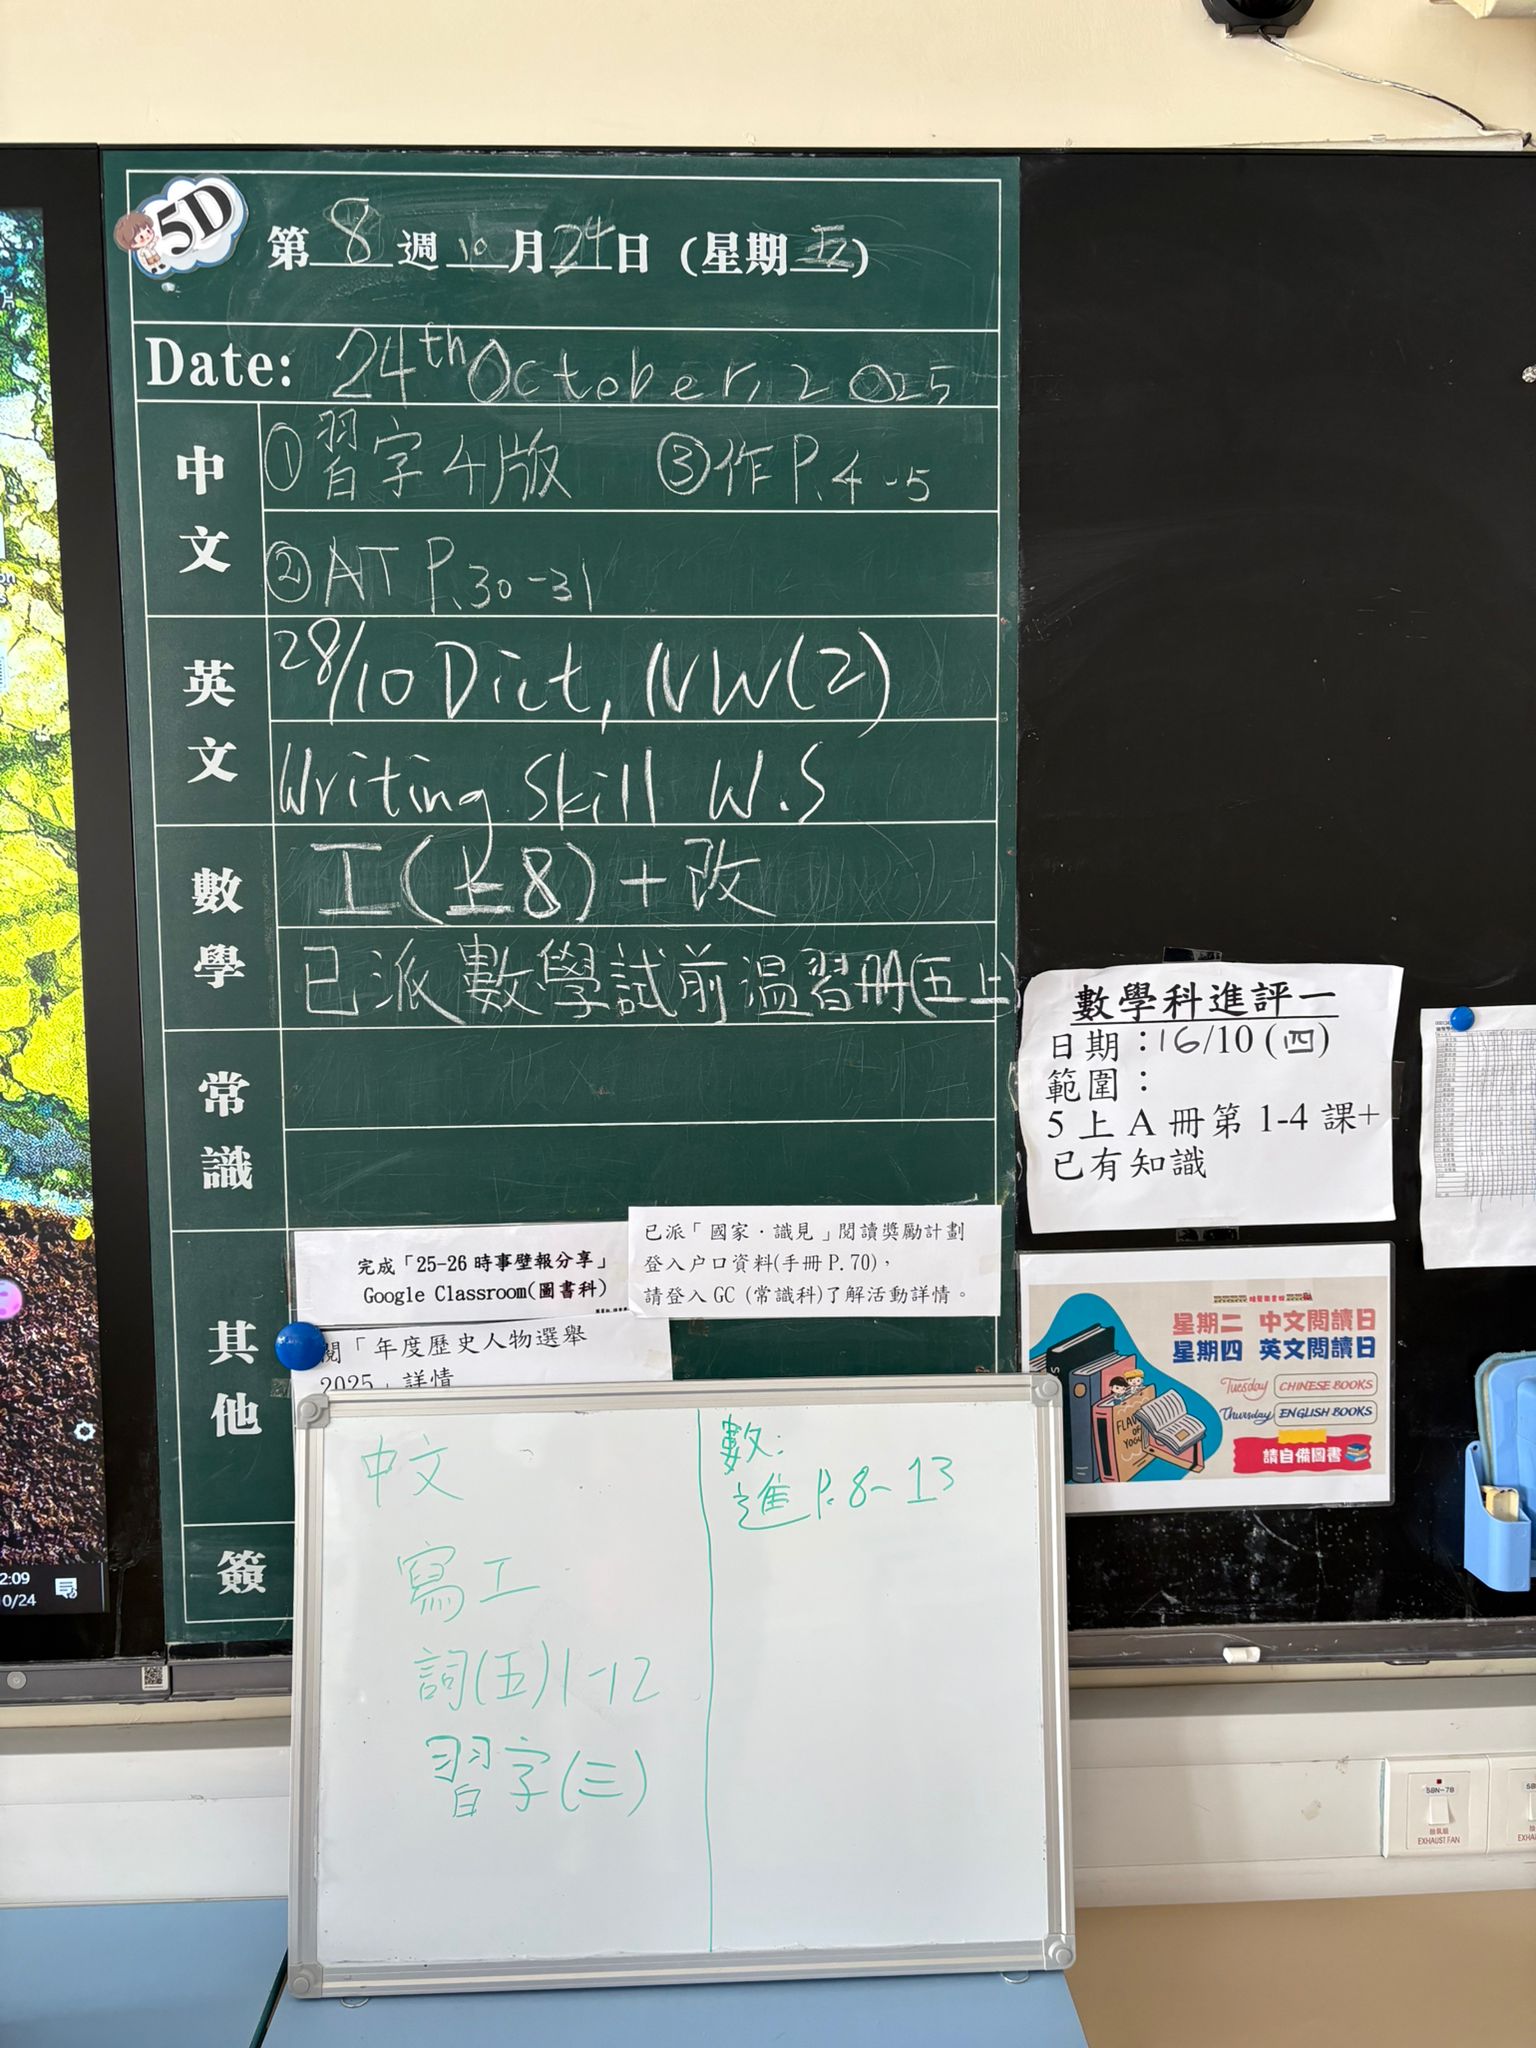 5D
第 8 週 10 月 24 日 (星期 五)
Date: 24th October, 2025
中文
① 習字4版 ③ 作 P.4-5
② AT P.30-31
英文
28/10 Dict, NW(2)
Writing Skill W.S
數學
工(上8)+改
已派數學試前溫習冊(五上)
常識
其他
完成「25-26 時事壁報分享」
Google Classroom(圖書科)
已派「國家·識見」閱讀獎勵計劃
登入户口資料(手冊 P.70),
請登入 GC (常識科)了解活動詳情。
閱「年度歷史人物選舉
2025」詳情
簽
中文
寫工
詞(五)1-12
習字(三)
數:
進 P.8-13
數學科進評一
日期:16/10 (四)
範圍:
5 上 A 冊第 1-4 課+
已有知識
星期二 中文閱讀日
星期四 英文閱讀日
Tuesday CHINESE BOOKS
Thursday ENGLISH BOOKS
請自備圖書
2:09
0/24
5BN-7B
抽氣扇
EXHAUST FAN